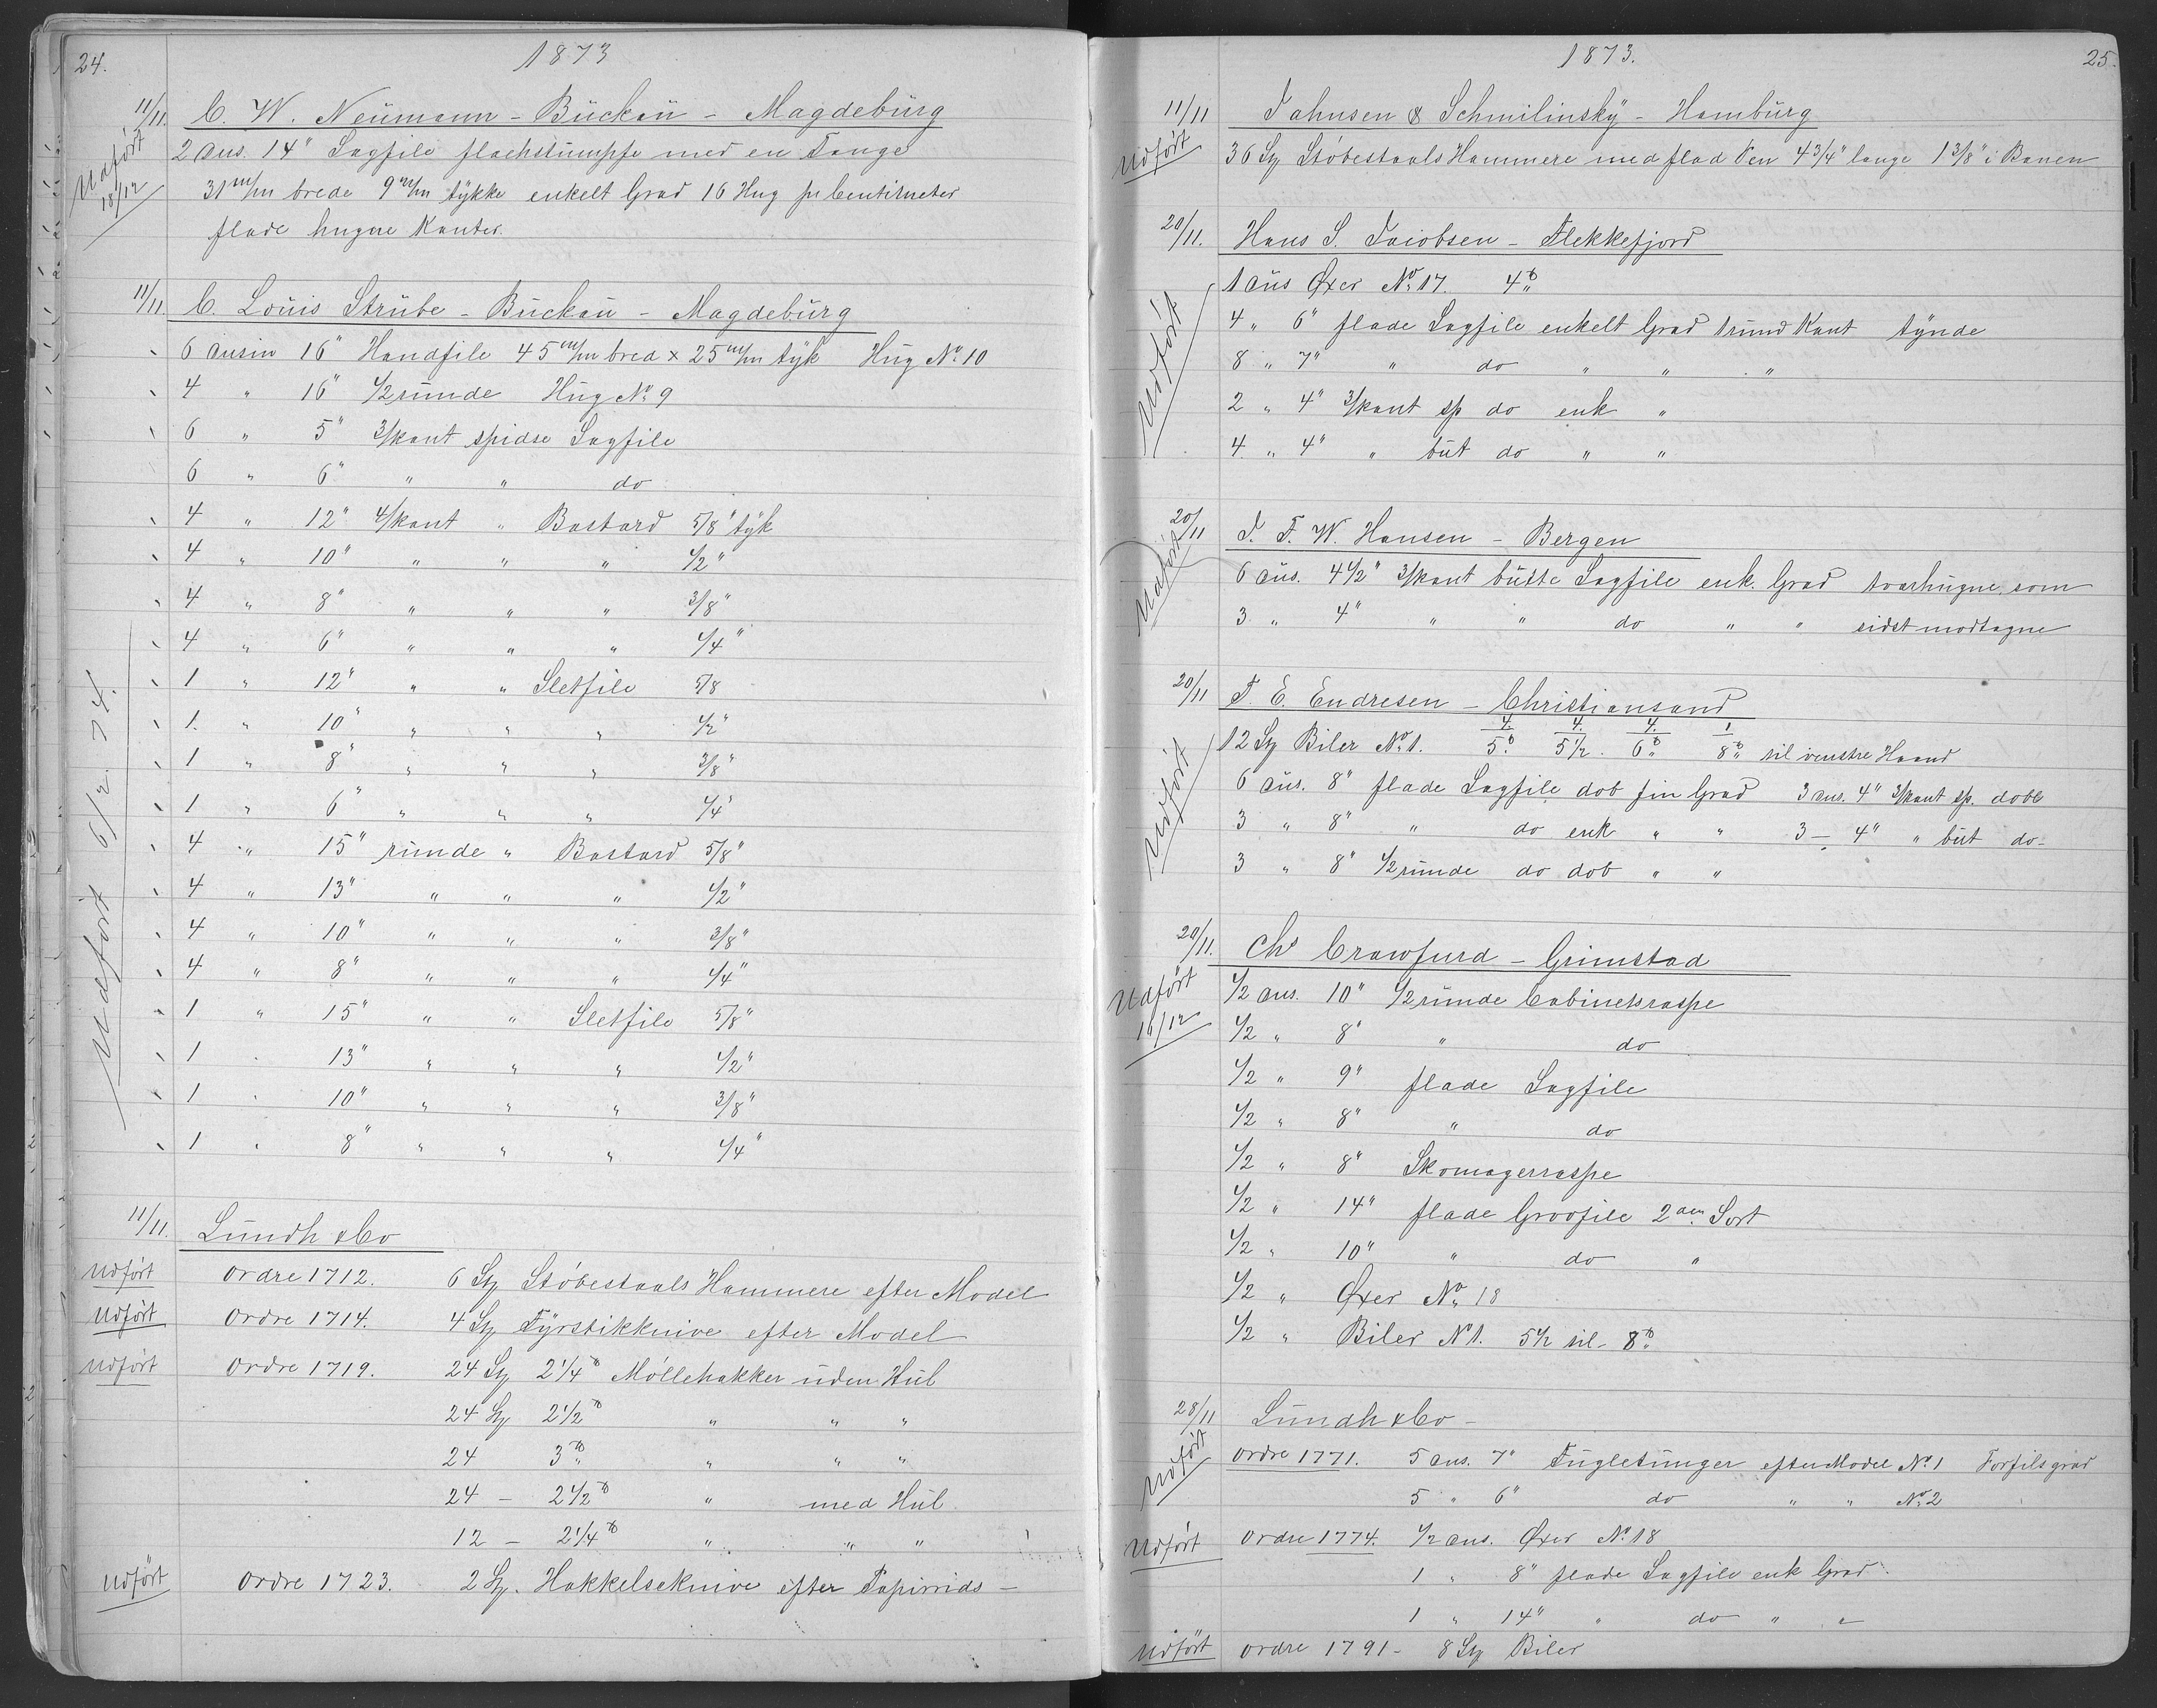 24.
1873
11/11. C. W. Neumann - Buckau - Magdeburg
Udført 18/12
2 dus. 14" Sagfile flachstumpfe med en Tange
31 m/m brede 9 m/m tykke enkelt Grad 16 Hug pr Centimeter
flade hugne Kanter.
11/11. C. Louis Strube - Buckau - Magdeburg
Udført 6/2 74.
6 dusin 16" Handfile 45 m/m bred x 25 m/m tyk Hug No. 10
4 " 16" 1/2 runde Hug No. 9
6 " 5" 3/kant spidse Sagfile
6 " 6" " " do
4 " 12" 4/kant " Bastard 5/8" tyk
4 " 10" " " " 1/2"
4 " 8" " " " 3/8"
4 " 6" " " " 1/4"
1 " 12" " " Sletfile 5/8
1. " 10" " " " 1/2"
1 " 8" " " " 3/8"
1 " 6" " " " 1/4"
4 " 15" runde " Bastard 5/8"
4 " 13" " " " 1/2"
4 " 10" " " " 3/8"
4 " 8" " " " 1/4"
1 " 15" " " Sletfile 5/8"
1 " 13" " " " 1/2"
1 " 10" " " " 3/8"
1 " 8" " " " 1/4"
11/11. Lundh & Co
Udført Ordre 1712. 6 St Støbestaals Hammere efter Model
Udført Ordre 1714. 4 St Fyrstikknive efter Model
Udført Ordre 1719. 24 St 2 1/4 ℔ Møllehakker uden Hul
24 St 2 1/2 ℔ " " "
24 3 ℔ " " "
24 - 2 1/2 ℔ " med Hul
12 - 2 1/4 ℔ " " "
Udført Ordre 1723. 2 St. Hakkelseknive efter Papirrids -
1873.
25.
11/11 Jahnsen & Schmilinsky - Hamburg
Udført
36 St Støbestaals Hammere med flad Pen 4 3/4" lange 1 3/8" i Banen
20/11. Hans S. Jacobsen - Flekkefjord
Udført
1 dus Øxer No. 17. 4 ℔
4 " 6" flade Sagfile enkelt Grad rund Kant tynde
8 " 7" " do " " "
2 " 4" 3/kant sp do enk "
4 " 4" " but do " "
20/11 J. F. W. Hansen - Bergen
Udført
6 dus. 4 1/2" 3/kant butte Sagfile enk. Grad tvarhugne som
3 " 4" " " do " " sidst modtagne
20/11 T. E. Endresen - Christiansand
Udført
12 St Biler No. 1. 4/5 ℔ 4/5 1/2. 4/6 ℔ 1/8 ℔ til venstre Haand
6 dus. 8" flade Sagfile dob fin Grad 3 dus. 4" 3/kant sp. dobb
3 " 8" " do enk " " 3 - 4" " but do -
3 " 8" 1/2 runde do dob " "
20/11. Chs Crawfurd - Grimstad
Udført 16/12
1/2 dus. 10" 1/2 runde Cabinetsraspe
1/2 " 8" " do
1/2 " 9" flade Sagfile
1/2 " 8" " do
1/2 " 8" Skomagerraspe
1/2 " 14" flade Grovfile 2den Sort
1/2 " 10" " do "
1/2 " Øxer No. 18
1/2 " Biler No 1. 5 1/2 til - 8 ℔
28/11 Lundh & Co -
Udført Ordre 1771. 5 dus. 7" Fugletunger efter Model No. 1 Forfilsgrad
5 " 6" do " " No. 2
Udført Ordre 1774. 1/2 dus. Øxer No. 18
1 " 8" flade Sagfile enk Grad
1 " 14" " do " "
Udført Ordre 1791 - 8 St Biler